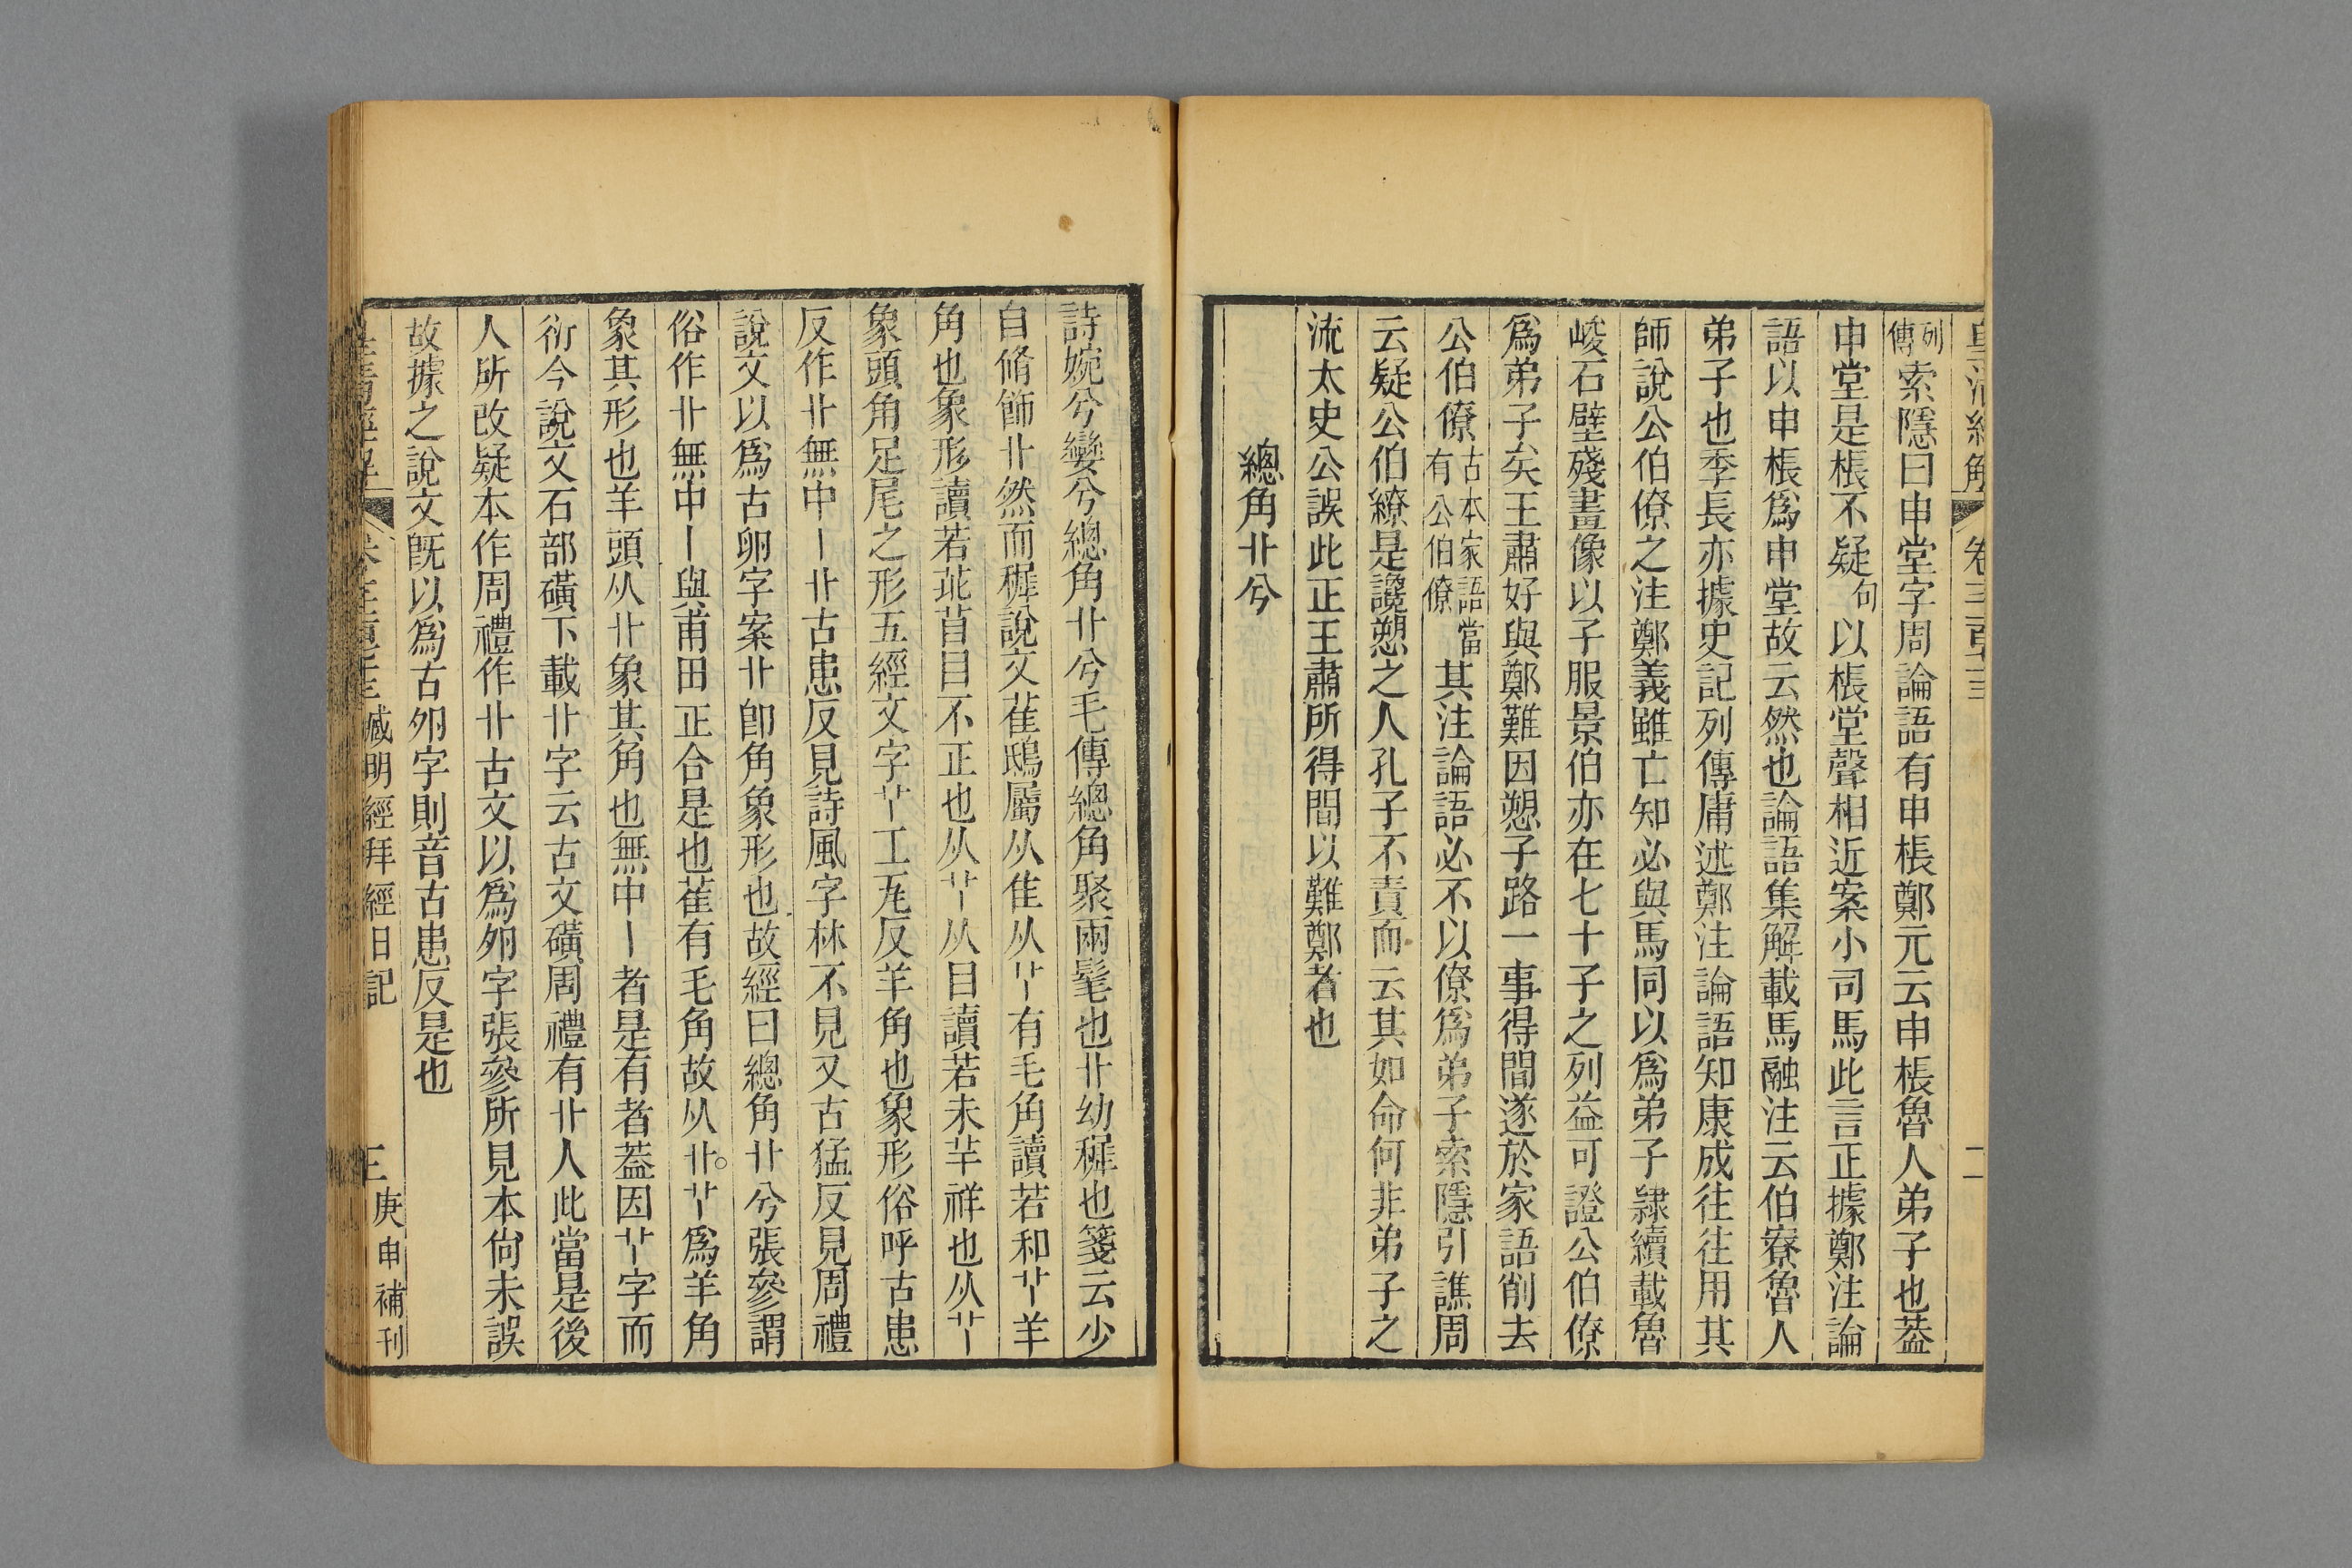 列傳索隱曰申堂字周論語有申棖鄭元云申棖魯人弟子也葢
申堂是棖不疑句以棖堂聲相近案小司馬此言正據鄭注論
語以申棖爲申堂故云然也論語集解載馬融注云伯寮魯人
弟子也季長亦據史記列傳庸述鄭注論語知康成往往用其
師說公伯僚之注鄭義雖亡知必與馬同以爲弟子隸續載魯
峻石壁殘畫像以子服景伯亦在七十子之列益可證公伯僚
爲弟子矣王肅好與鄭難因愬子路一事得間遂於家語削去
公伯僚古本家語當有公伯僚其注論語必不以僚爲弟子索隱引譙周
云疑公伯繚是讒愬之人孔子不責而云其如命何非弟子之
流太史公誤此正王肅所得間以難鄭者也
總角丱兮
詩婉兮孌兮總角丱兮毛傳總角聚兩髦也丱幼穉也箋云少
自脩飾丱然而穉說文萑鴟屬从隹从𦫳有毛角讀若和𦫳羊
角也象形讀若菲苜目不正也从𦫳从目讀若末羋祥也从𦫳
象頭角足尾之形五經文字𦫳工瓦反羊角也象形俗呼古患
反作丱無中丨丱古患反見詩風字林不見又古猛反見周禮
說文以爲古卵字案丱卽角象形也故經曰總角丱兮張參謂
俗作丱無中丨與甫田正合是也萑有毛角故从丱𦫳爲羊角
象其形也羊頭从丱象其角也無中丨者是有者葢因𦫳字而
衍今說文石部磺下載丱字云古文磺周禮有丱人此當是後
人所改疑本作周禮作丱古文以爲卵字張參所見本尙未誤
故據之說文旣以爲古卵字則音古患反是也
臧明經拜經日記 三 庚申補刊